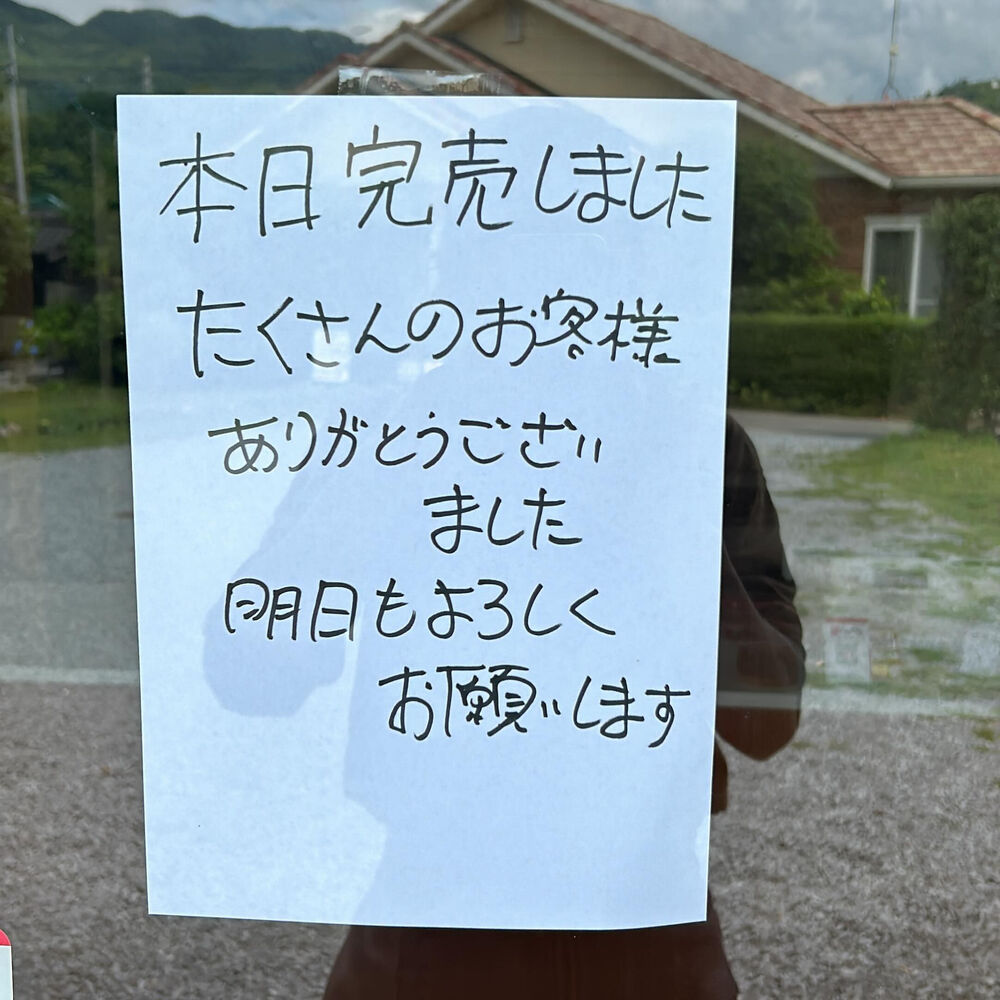 本日完売しました
たくさんのお客様
ありがとうござい
ました
明日もよろしく
お願いします